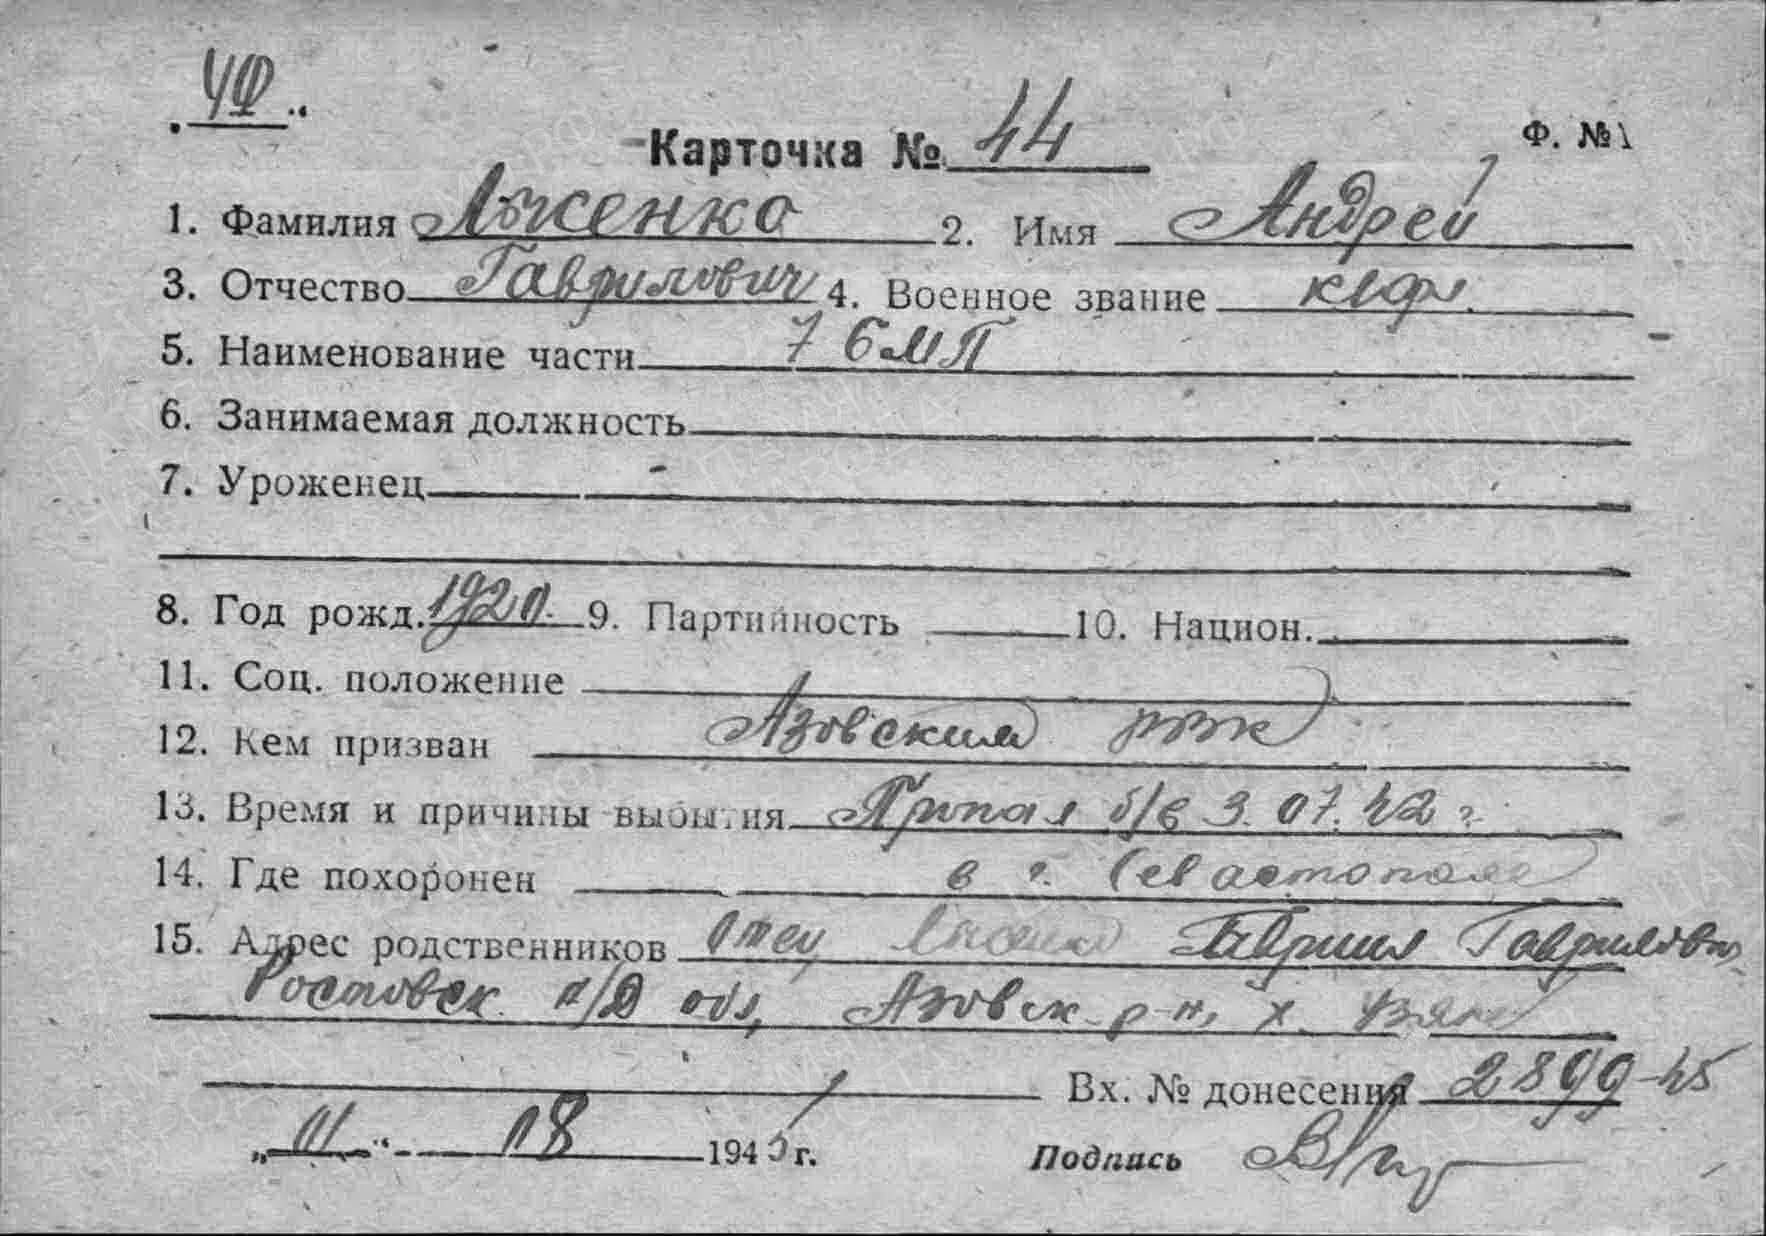 ЧФ
Карточка № 44
Ф. №1
1. Фамилия Лыженко 2. Имя Андрей
3. Отчество Гаврилович 4. Военное звание кр-ф
5. Наименование части 7 БМП
6. Занимаемая должность
7. Уроженец
8. Год рожд. 1920. 9. Партийность 10. Национ.
11. Соц. положение
12. Кем призван Азовским РВК
13. Время и причины выбытия Пропал б/в 3.07.42 г.
14. Где похоронен в г. Севастополе
15. Адрес родственников Отец Гавриил Гаврилович
Ростовск. н/Д обл, Азовск р-н, х.
Вх. № донесения 2899-45
„11" 08 1945 г. Подпись